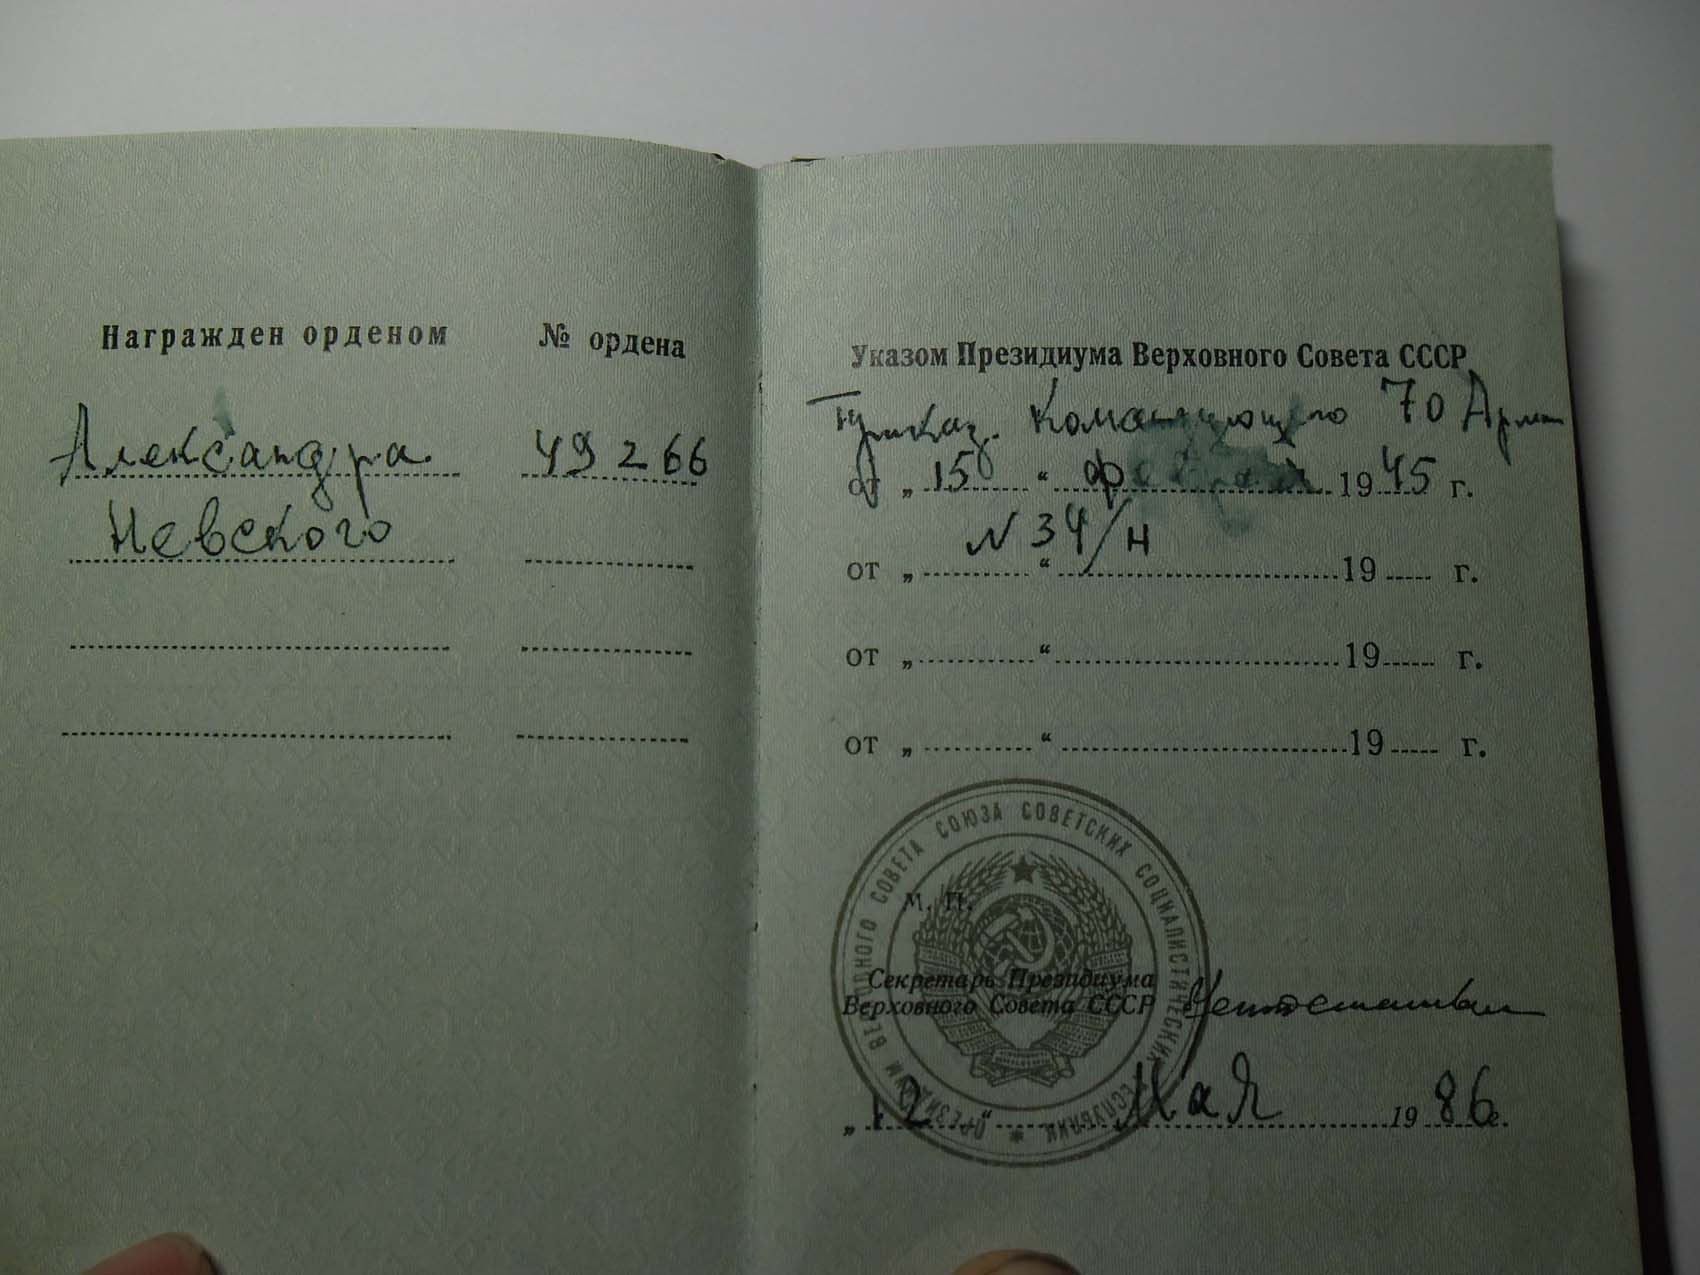 Награжден орденом № ордена
Александра 49266
Невского
Указом Президиума Верховного Совета СССР
Приказ. Командующего 70 Арми
от „ 15 “ февраля 1945 г.
N 34/н
от „ “ 19 г.
от „ “ 19 г.
от „ “ 19 г.
ПРЕЗИДИУМ ВЕРХОВНОГО СОВЕТА СОЮЗА СОВЕТСКИХ СОЦИАЛИСТИЧЕСКИХ РЕСПУБЛИК *
М. П.
Секретарь Президиума
Верховного Совета СССР
„ 12 “ Мая 1986 г.